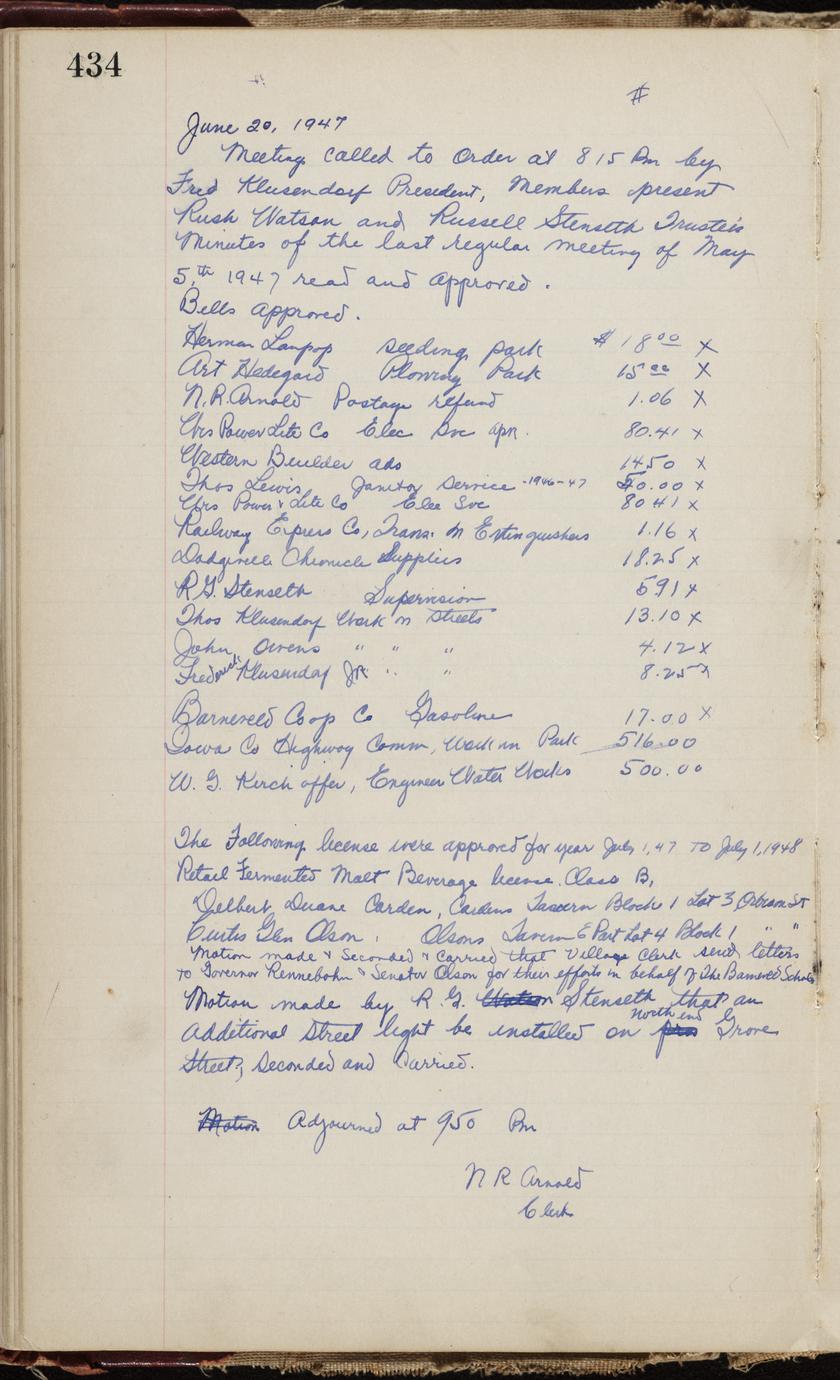 434
#
June 20, 1947
Meeting called to Order at 815 Pm by
Fred Klusendorf President, Members present
Rush Watson and Russell Stenseth Trustees
Minutes of the last regular meeting of May
5,th 1947 read and approved.
Bills approved.
Herman Lampop seeding park $18 00 x
Art Hedegard Plowing Park 15 00 x
N.R. Arnold Postage refund 1.06 x
Wis Power Lite Co Elec Svc apr. 80.41 x
Western Builder ads 14 50 x
Thos Lewis Janitor Service -1946-47 50.00 x
Wis Power & Lite Co Elec Svc 80 41 x
Railway Express Co, Trans. on Extinguishers 1.16 x
Dodgeville Chronicle Supplies 18.25 x
R.G. Stenseth Supervision 5 91 x
Thos Klusendorf Work on Streets 13.10 x
John Owens " " " 4.12 x
Frederick Klusendorf JR. " " 8.25 x
Barneveld Coop Co Gasoline 17.00 x
Iowa Co Highway Comm, Work in Park 516.00
W. G. Kirchoffer, Engineer Water Works 500.00
The Following license were approved for year July 1, 47 TO July 1, 1948
Retail Fermented Malt Beverage license Class B,
Delbert Duane Carden, Cardens Tavern Block 1 Lot 3 Orbison St
Curtis Glen Olson, Olsons Tavern E Part Lot 4 Block 1 " "
Motion made & Seconded & Carried that Village Clerk send letters
to Governor Rennebohm & Senator Olson for their efforts in behalf of The Barneveld Schools
Motion made by R. G. Watson Stenseth that an
north end
Additional Street light be installed on Grove
Street, Seconded and Carried.
Motion Adjourned at 950 Pm
N R Arnold
Clerk